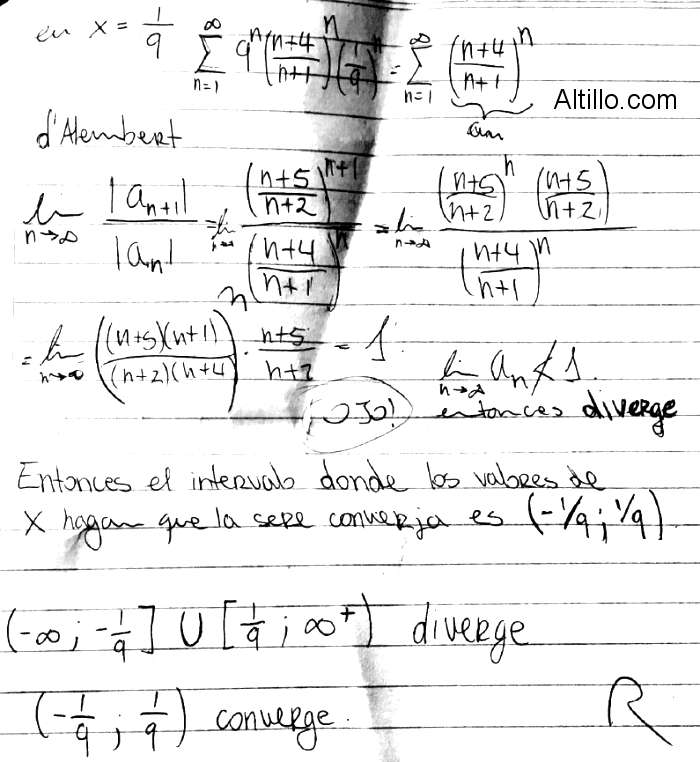 en x = 1/9 ∑_{n=1}^{∞} 9^n ((n+4)/(n+1))^n (1/9)^n = ∑_{n=1}^{∞} ((n+4)/(n+1))^n
Altillo.com
an
d'Alembert
lim_{n→∞} |a_{n+1}|/|a_n| = lim ((n+5)/(n+2))^{n+1} / ((n+4)/(n+1))^n = lim_{n→∞} ((n+5)/(n+2))^n ((n+5)/(n+2)) / ((n+4)/(n+1))^n
= lim_{n→∞} ((n+5)(n+1)/(n+2)(n+4))^n · (n+5)/(n+2) = 1
lim_{n→∞} a_n ≮ 1.
¡OJO! entonces diverge
Entonces el intervalo donde los valores de
x hagan que la serie converja es (-1/9 ; 1/9)
(-∞ ; -1/9] ∪ [1/9 ; ∞⁺) diverge
(-1/9 ; 1/9) converge.
R